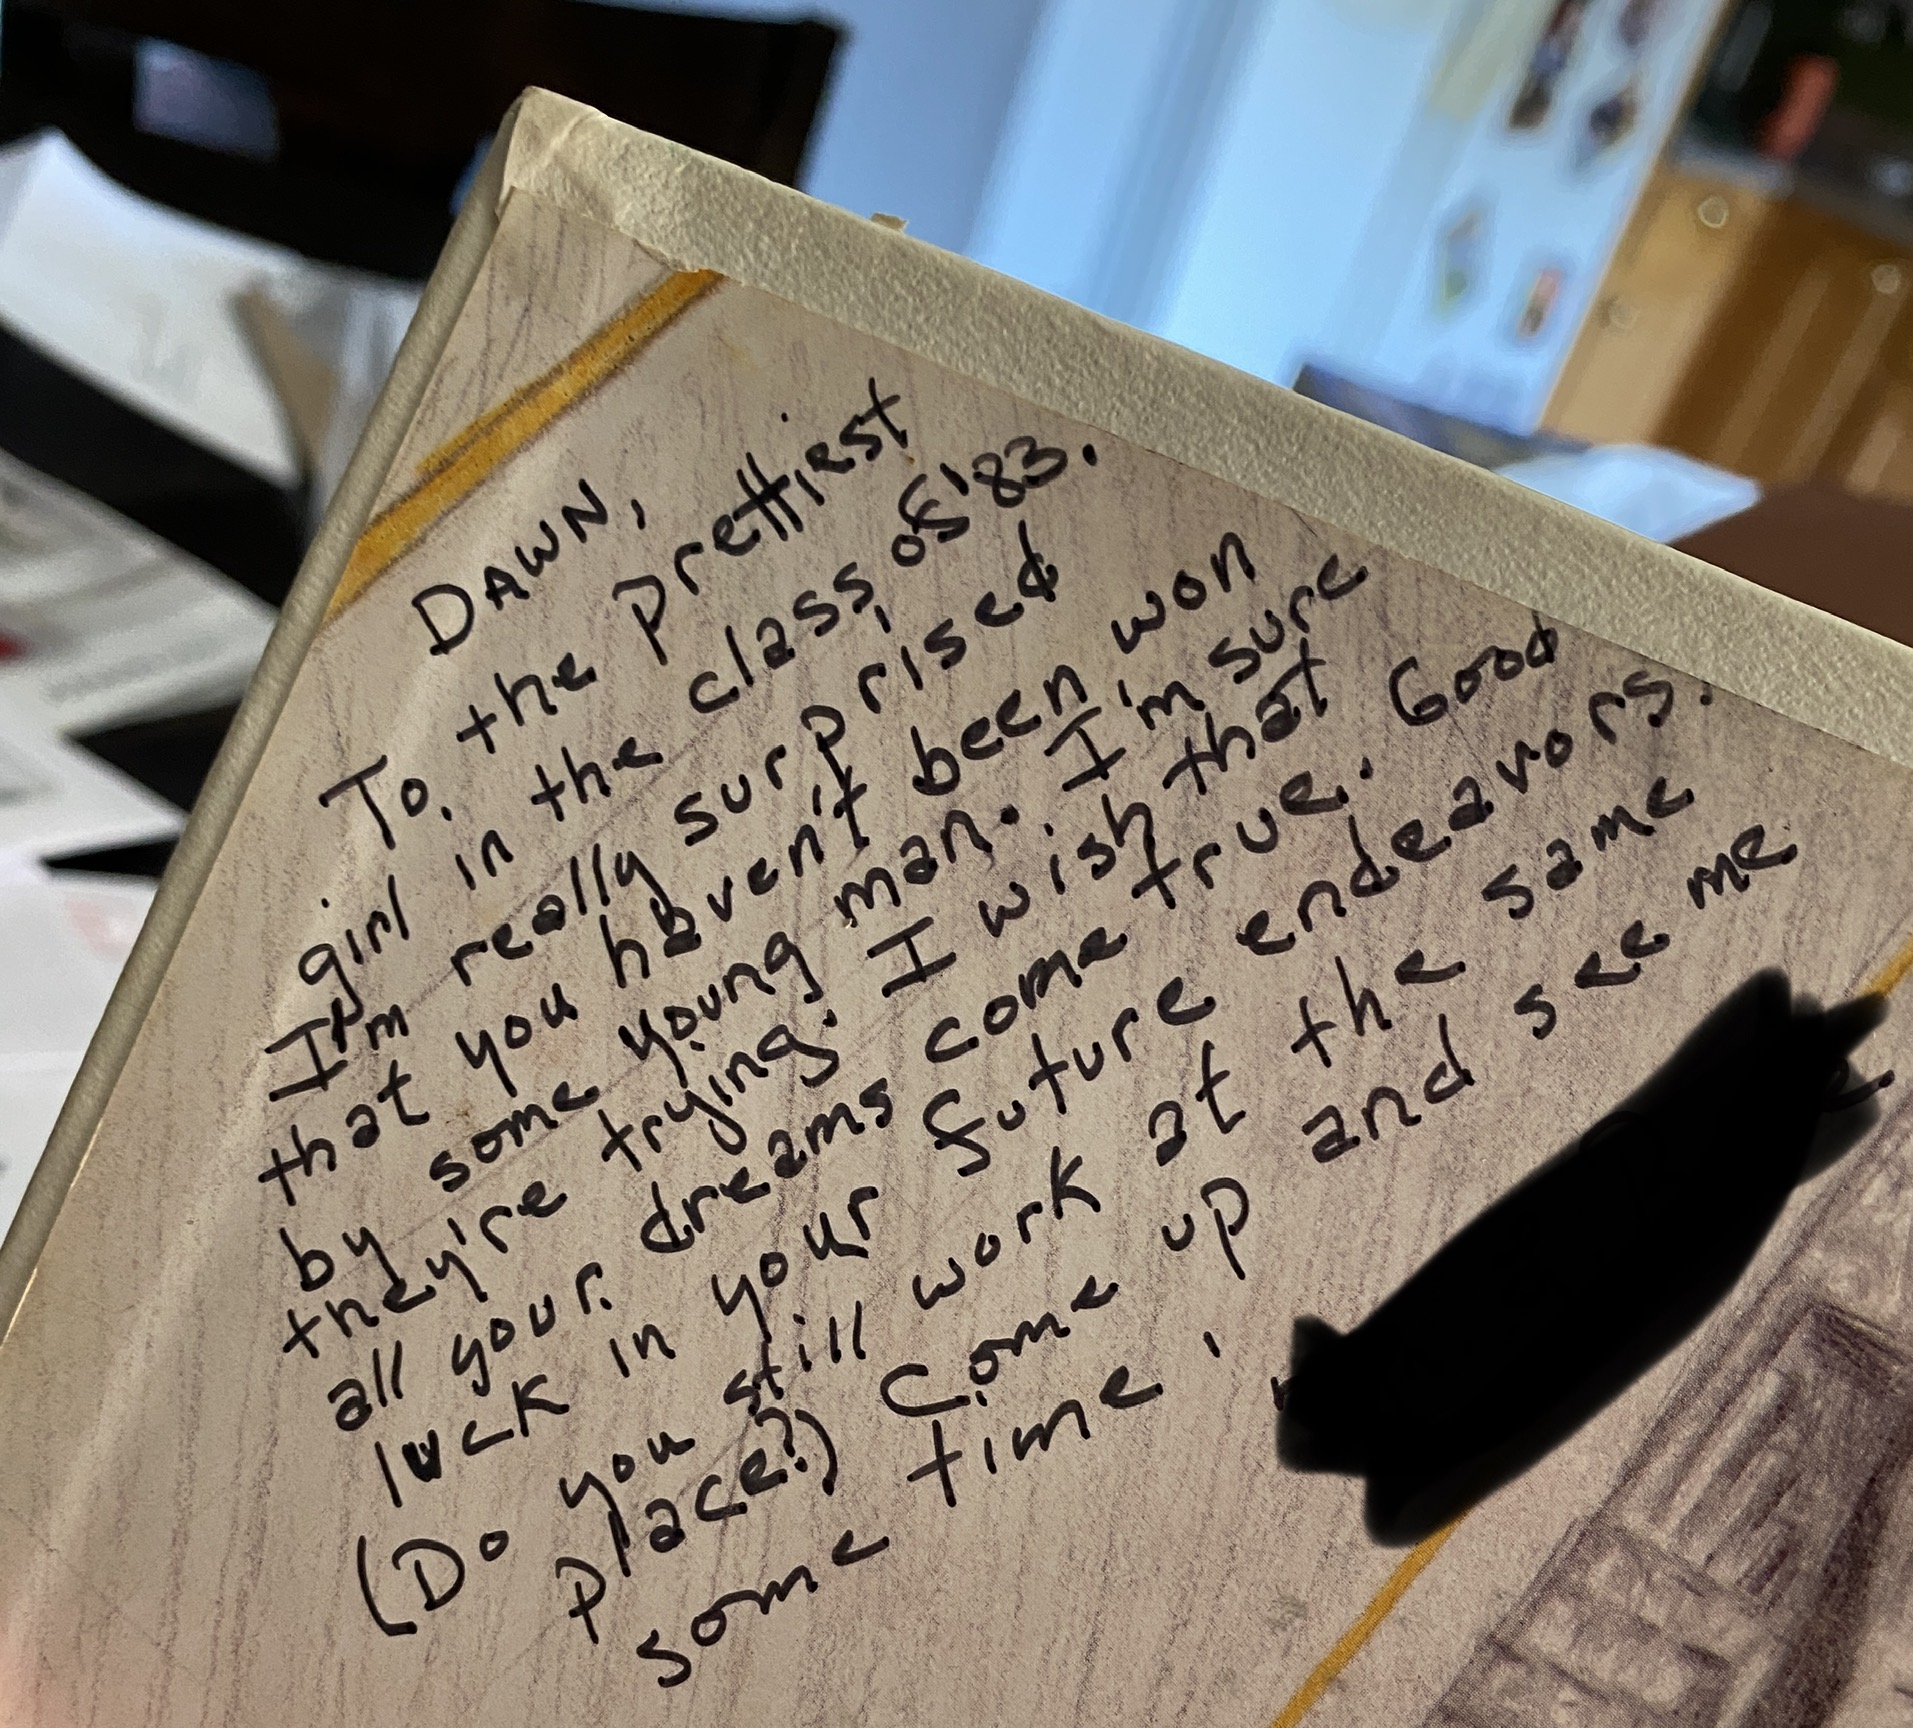 DAWN,
To the prettiest
girl in the class of '83.
I'm really surprised
that you haven't been won
by some young man. I'm sure
they're trying. I wish that
all your dreams come true. Good
luck in your future endeavors.
(Do you still work at the same
place?) Come up and see me
some time,